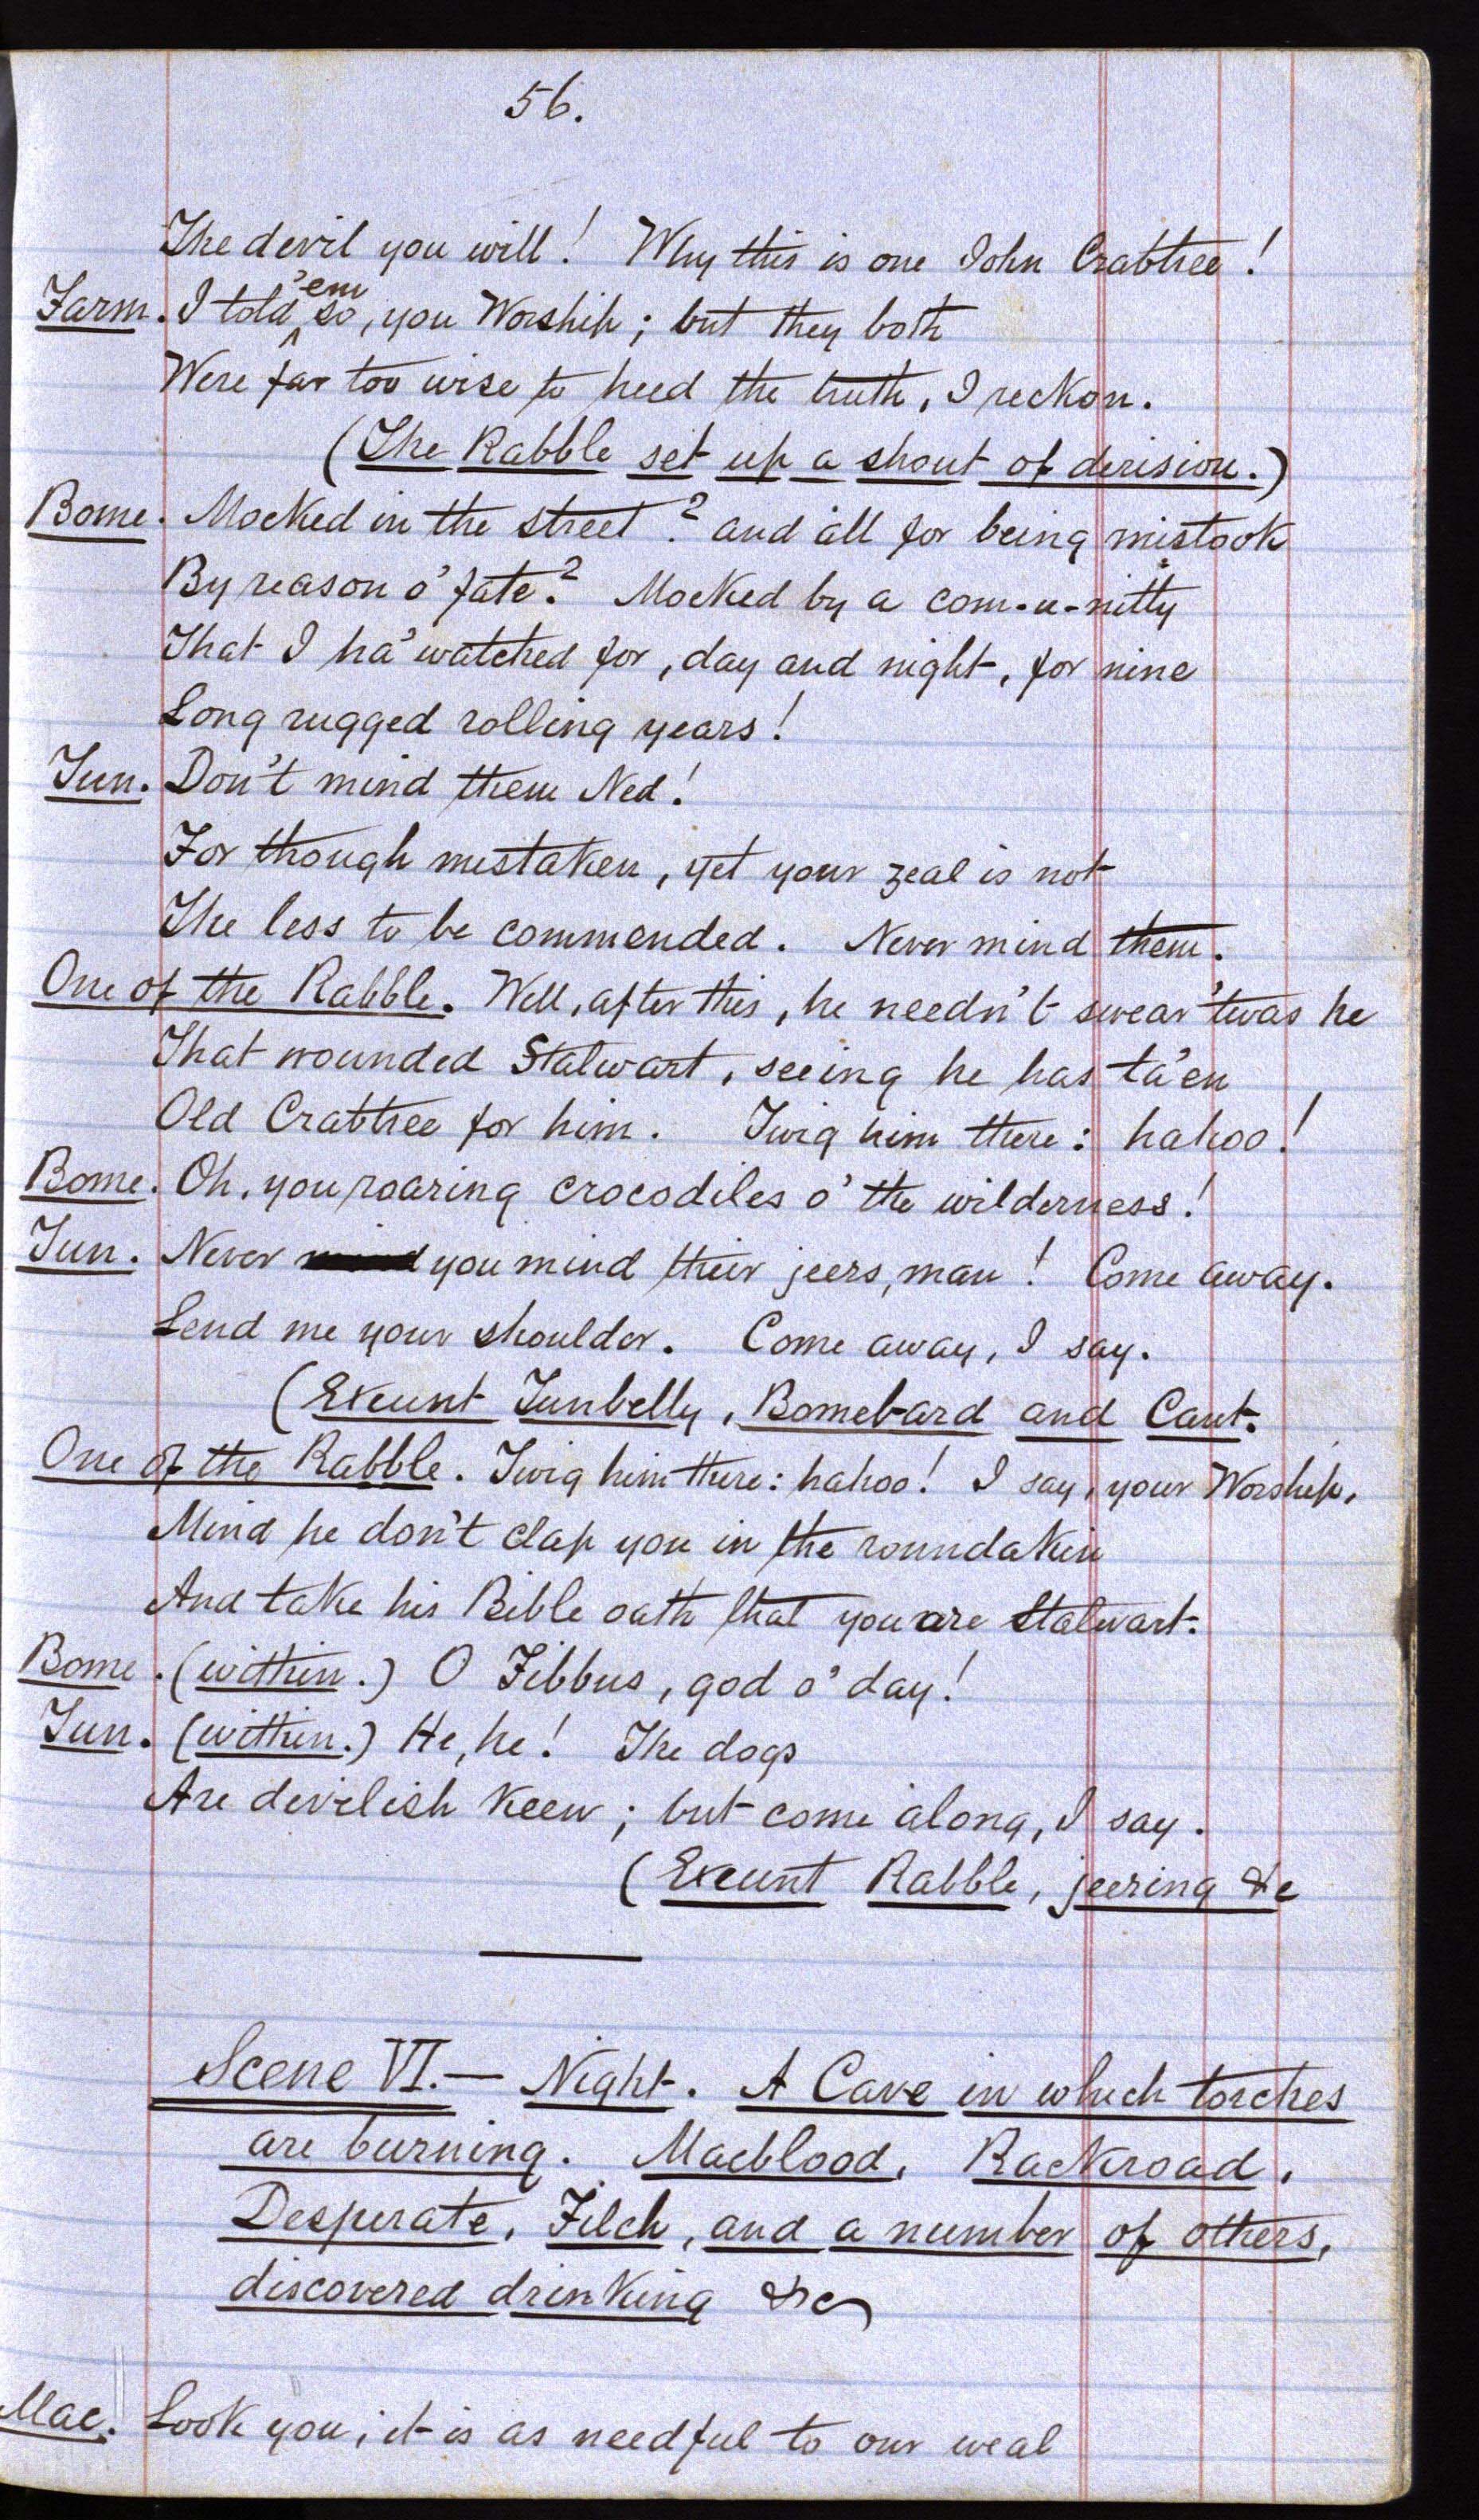 56.
The devil you will! Why this is one John Crabtree!
Farm. I told 'em so, you Worship; but they both
Were far too wise to heed the truth, I reckon.
(The Rabble set up a shout of derision.)
Bome. Mocked in the street? and all for being mistook
By reason o' fate? Mocked by a com-u-nitty
That I ha' watched for, day and night, for nine
Long rugged rolling years!
Tun. Don't mind them Ned!
For though mistaken, yet your zeal is not
The less to be commended. Never mind them.
One of the Rabble. Well, after this, he needn't swear 'twas he
That wounded Stalwart, seeing he has ta'en
Old Crabtree for him. Twig him there: hahoo!
Bome. Oh, you roaring crocodiles o' the wilderness!
Tun. Never mind you mind their jeers, man! Come away.
Lend me your shoulder. Come away, I say.
(Exeunt Tunbelly, Bomebard and Cant.
One of the Rabble. Twig him there: hahoo! I say, your Worship,
Mind he don't clap you in the roundakin
And take his Bible oath that you are Stalwart.
Bome. (within.) O Fibbus, god o' day!
Tun. (within.) He, he! The dogs
Are devilish keen; but come along, I say.
(Exeunt Rabble, jeering &c
Scene VI.— Night. A Cave in which torches
are burning. Macblood, Rackroad,
Desperate, Filch, and a number of others,
discovered drinking &c
Mac. Look you; it is as needful to our weal